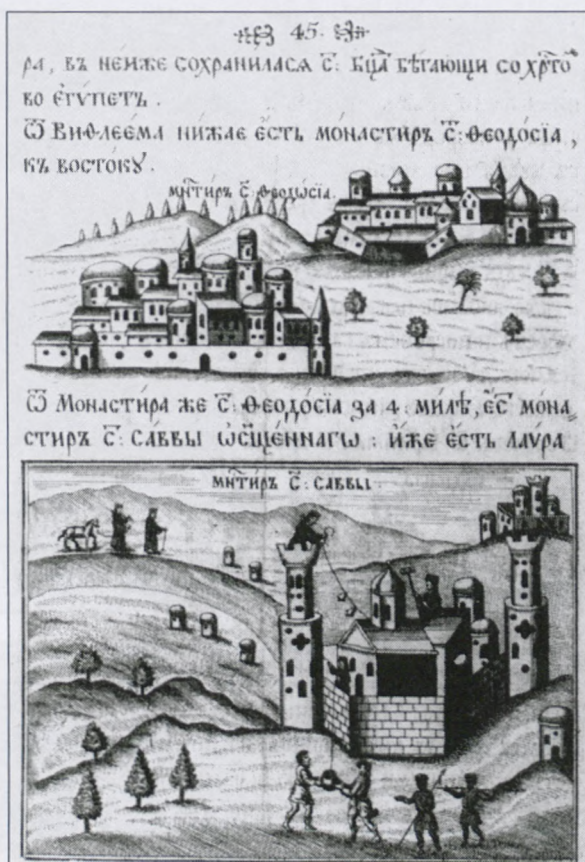 45.
ра, въ неиже сохранилася С҃: Бц҃а бѣгающи со хр҃то҇
во є҆гѵпетъ.
Ѿ Виѳлеє́ма ни́жає є҆́сть мо́настиръ С҃: Ѳеодо́сїа,
къ восто́кꙋ.
мн҃тиръ С҃: Ѳеодѡ́сїа.
Ѿ Монасти́ра же С҃: Ѳеодо́сїа за 4: ми́лѣ, є҆́С҃ мона
стиръ С҃: Са́ввы ѡ҆сщ҃е́ннагѡ: и҆́же є҆́сть ла́ѵра
мн҃тиръ С҃: Саввы: